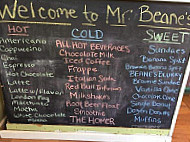 Welcome to Mr Beanes
HOT COLD SWEET
Americano
Cappuccino
Chai
Espresso
Hot Chocolate
Latte
Latte w/ Flavor
London Fog
Macchiato
Mocha
White Chocolate
Mocha
ALL HOT BEVERAGES
Chocolate Milk
Iced Coffee
Frappe
Italian Soda
Red Bull Infusion
Milkshakes
Root Beer Float
Smoothie
THE HOMER
Sundaes
Banana Split
Brownie Sundae
Vanilla Cone
Chocolate Cone
Single Doozy
Double Doozy
Muffins